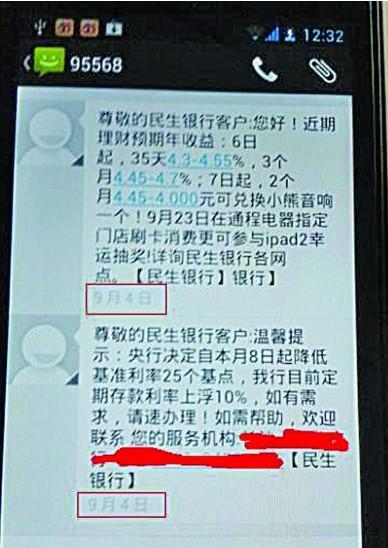 12:32
95568
尊敬的民生银行客户:您好！近期
理财预期年收益：6日
起，35天4.3-4.55%，3个
月4.45-4.7%；7日起，2个
月4.45-4.000元可兑换小熊音响
一个！9月23日在通程电器指定
门店刷卡消费更可参与ipad2幸
运抽奖!详询民生银行各网
点。【民生银行】银行】
9月4日
尊敬的民生银行客户:温馨提
示：央行决定自本月8日起降低
基准利率25个基点，我行目前定
期存款利率上浮10%，如有需
求，请速办理！如需帮助，欢迎
联系 您的服务机构:
行
【民生
银行】
9月4日